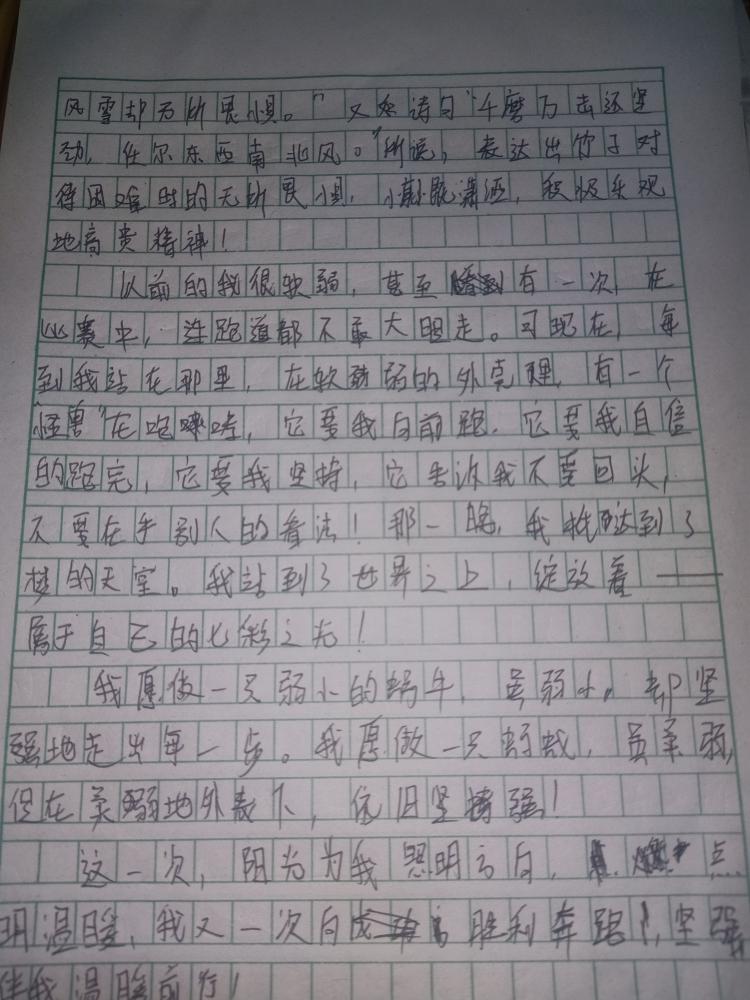 风雪却无所畏惧。”又如诗句“千磨万击还坚
劲，任尔东西南北风。”所说，表达出竹子对
待困难时的无所畏惧，潇洒，积极乐观
地高贵精神！
以前的我很软弱，甚至有一次，在
比赛中，连跑道都不敢大胆走。可现在，每
到我站在那里，在软弱的外壳里，有一个
“怪兽”在咆哮，它要我向前跑，它要我自信
的跑完，它要我坚持，它告诉我不要回头，
不要在乎别人的看法！那一晚，我抵达到了
梦的天堂。我站到了世界之上，绽放着——
属于自己的七彩之光！
我愿做一只弱小的蜗牛，虽弱小，却坚
强地走出每一步。我愿做一只蚂蚁，虽柔弱，
但在柔弱地外表下，依旧坚持强！
这一次，阳光为我照明方向，点
明温暖，我又一次向胜利奔跑，坚强
伴我温暖前行！